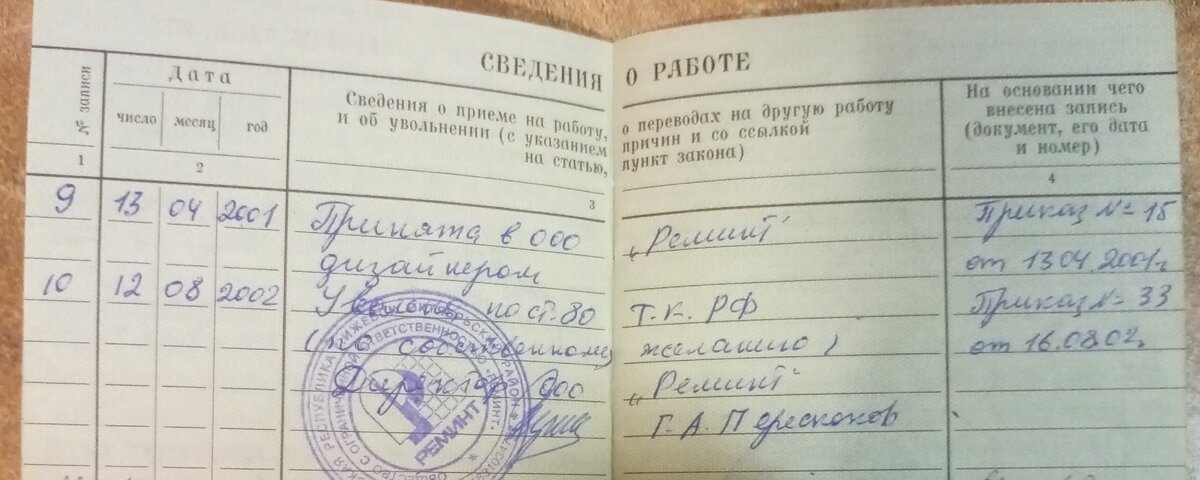 СВЕДЕНИЯ О РАБОТЕ
№ записи
Дата
число месяц год
Сведения о приеме на работу, о переводах на другую работу
и об увольнении (с указанием причин и со ссылкой
на статью, пункт закона)
На основании чего
внесена запись
(документ, его дата
и номер)
1 2 3 4
9 13 04 2001 Принята в ООО „Реминт" Приказ № 15
дизайнером от 13.04.2001г.
10 12 08 2002 по ст. 80 Т.К. РФ Приказ № 33
(по собственному желанию) от 16.08.02г.
Директор ООО „Реминт"
Г.А. Перескоков
РЕМИНТ